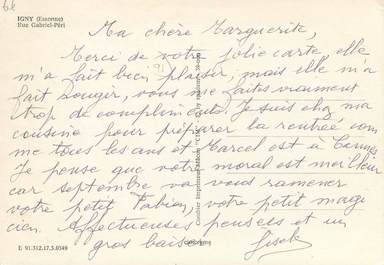 IGNY (Essonne)
Rue Gabriel-Péri
Ma chère Marguerite,
Merci de votre jolie carte, elle
m'a fait bien plaisir, mais elle m'a
fait rougir, vous me faites vraiment
trop de compliments. Je suis chez ma
cousine pour préparer la rentrée com
me tous les ans et Marcel est à
Je pense que votre moral est meilleur
car septembre va vous ramener
votre petit Fabien, votre petit magi
cien. Affectueuses pensées et un
gros baiser. Gisèle
Combier Imprimeur Mâcon
E 91.312.17.3.0349